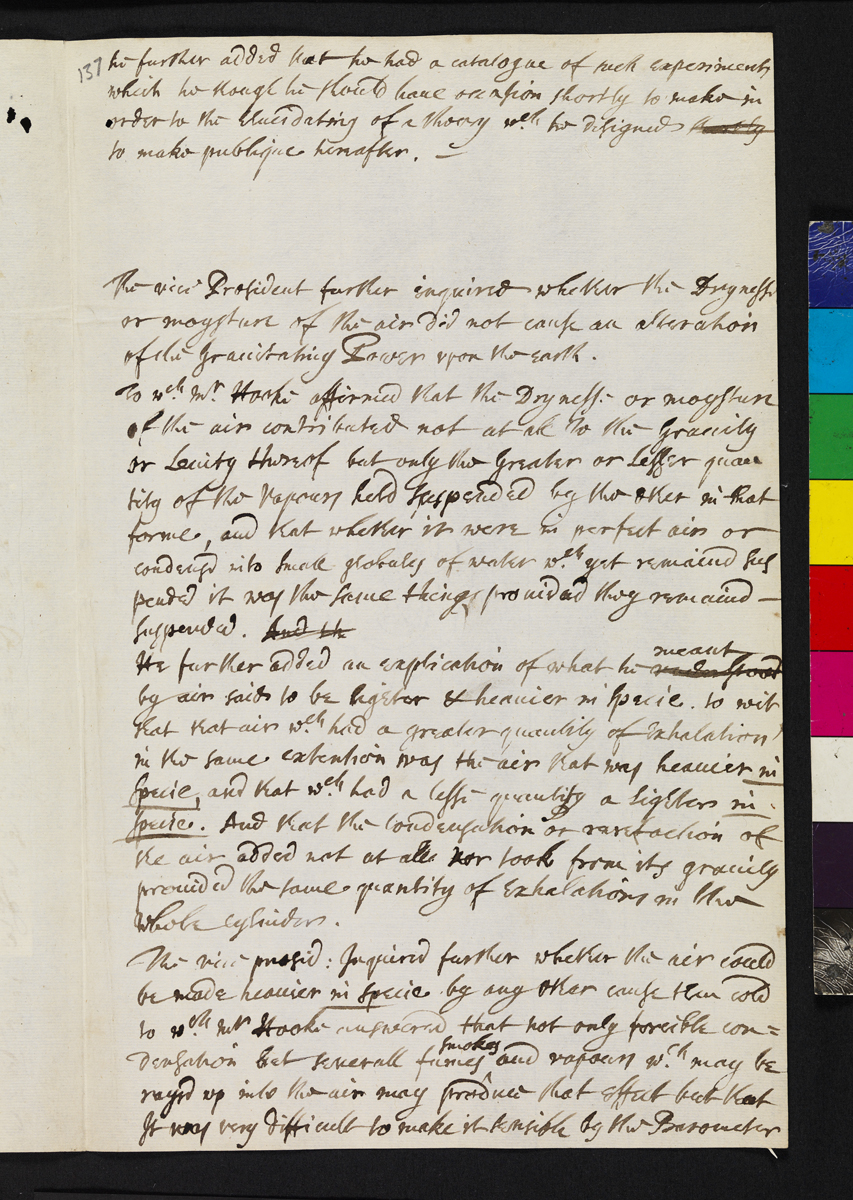 137
he further added that he had a catalogue of such experiments
which he though he should have occasion shortly to make in
order to the Elucidating of a theory wch. he designed shortly
to make publique hereafter. —
The vice President further inquired whether the Drynesse
or moysture of the air did not cause an alteration
of the Gravitating Power upon the earth.
To wch. mr. Hooke affirmed that the Drynesse or moysture
of the air contributed not at all to the Gravity
or Levity thereof but only the Greater or Lesser quan
tity of the Vapours held suspended by the other in that
forme, and that whether it were in perfect air or
condensd into small globules of water wch. yet remaind sus
pended it was the same thing provided they remaind —
suspended. And th
meant
He further added an explication of what he understood
by air said to be lighter & heavier in specie. to wit
that that air wch. had a greater quantity of Exhalations
in the same extention was the air that was heavier in
specie, and that wch had a lesse quantity a lighter in
specie. And that the Condensation or rarefaction of
the air added not at all nor took from its gravity
provided the same quantity of Exhalations in the
whole cylinder.
The vice presid: Inquired further whether the air could
be made heavier in specie by any other cause then cold
to wch mr Hooke answered that not only forcible con=
smokes
densation but severall fumes ^ and vapours wch. may be
raysd up into the air may produce that effect but that
It was very difficult to make it sensible by the Barometer